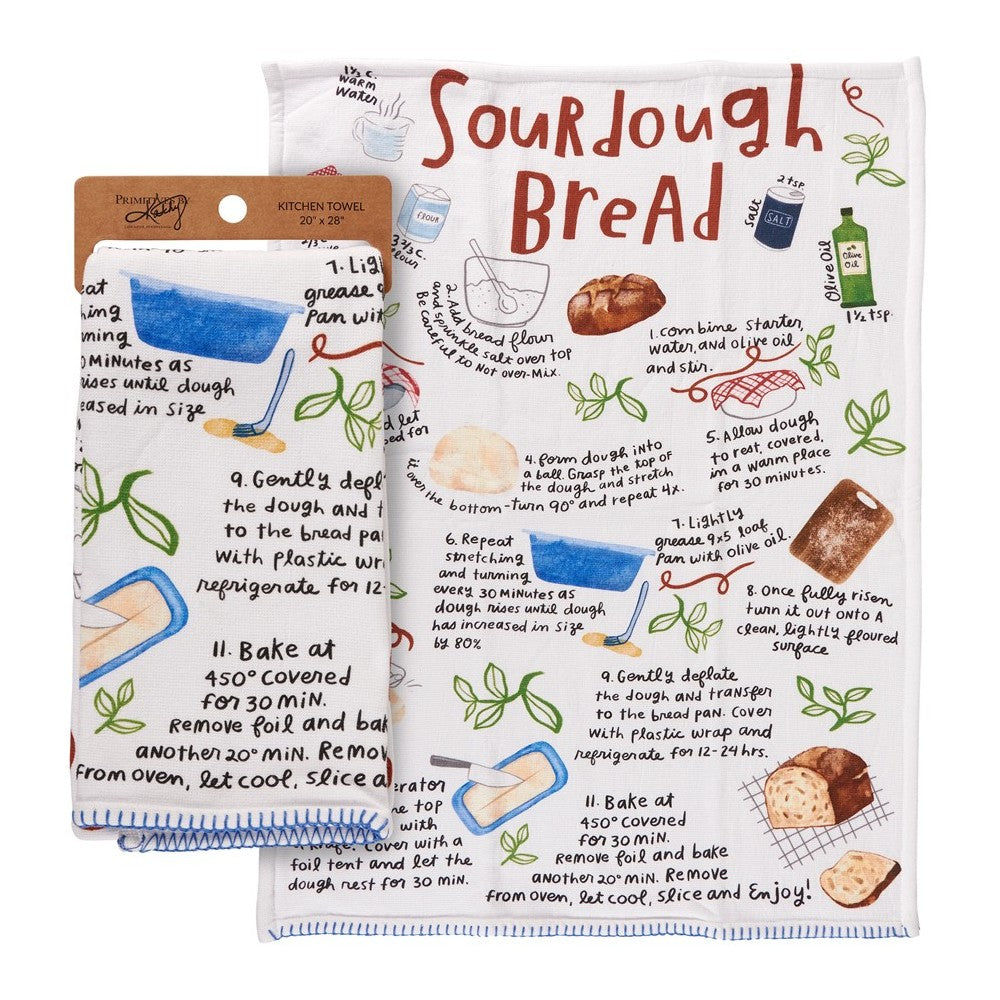 1⅓ c.
warm
water
Sourdough
Bread
2 tsp.
salt
SALT
FLOUR
3⅔ c.
flour
2/3 c.
Olive Oil
Olive
Oil
1½ tsp.
1. Combine starter,
water, and olive oil
and stir.
2. Add bread flour
and sprinkle salt over top
Be careful to Not over-mix.
d let
ed for
4. form dough into
a ball. Grasp the top of
the dough and stretch
it over the bottom-turn 90° and repeat 4x.
5. Allow dough
to rest, covered,
in a warm place
for 30 minutes.
6. Repeat
stretching
and turning
every 30 minutes as
dough rises until dough
has increased in size
by 80%
7. Lightly
grease 9x5 loaf
Pan with olive oil.
8. Once fully risen
turn it out onto a
clean, lightly floured
surface
9. Gently deflate
the dough and transfer
to the bread pan. Cover
with plastic wrap and
refrigerate for 12-24 hrs.
erator
e top
with
a knife. Cover with a
foil tent and let the
dough rest for 30 min.
11. Bake at
450° covered
for 30 min.
Remove foil and bake
another 20° min. Remove
from oven, let cool, slice and Enjoy!
PRIMITIVES BY
Kathy
KITCHEN TOWEL
20" x 28"
eat
hing
ming
0 minutes as
rises until dough
eased in size
7. Lig
grease
Pan wit
9. Gently defl
the dough and t
to the bread pa
with plastic w
refrigerate for 12-
11. Bake at
450° covered
for 30 min.
Remove foil and bak
another 20° min. Remov
from oven, let cool, slice a